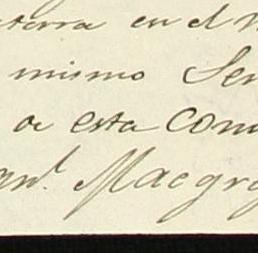 terra en el
mismo Sen
de esta Com
gnl. Macgre